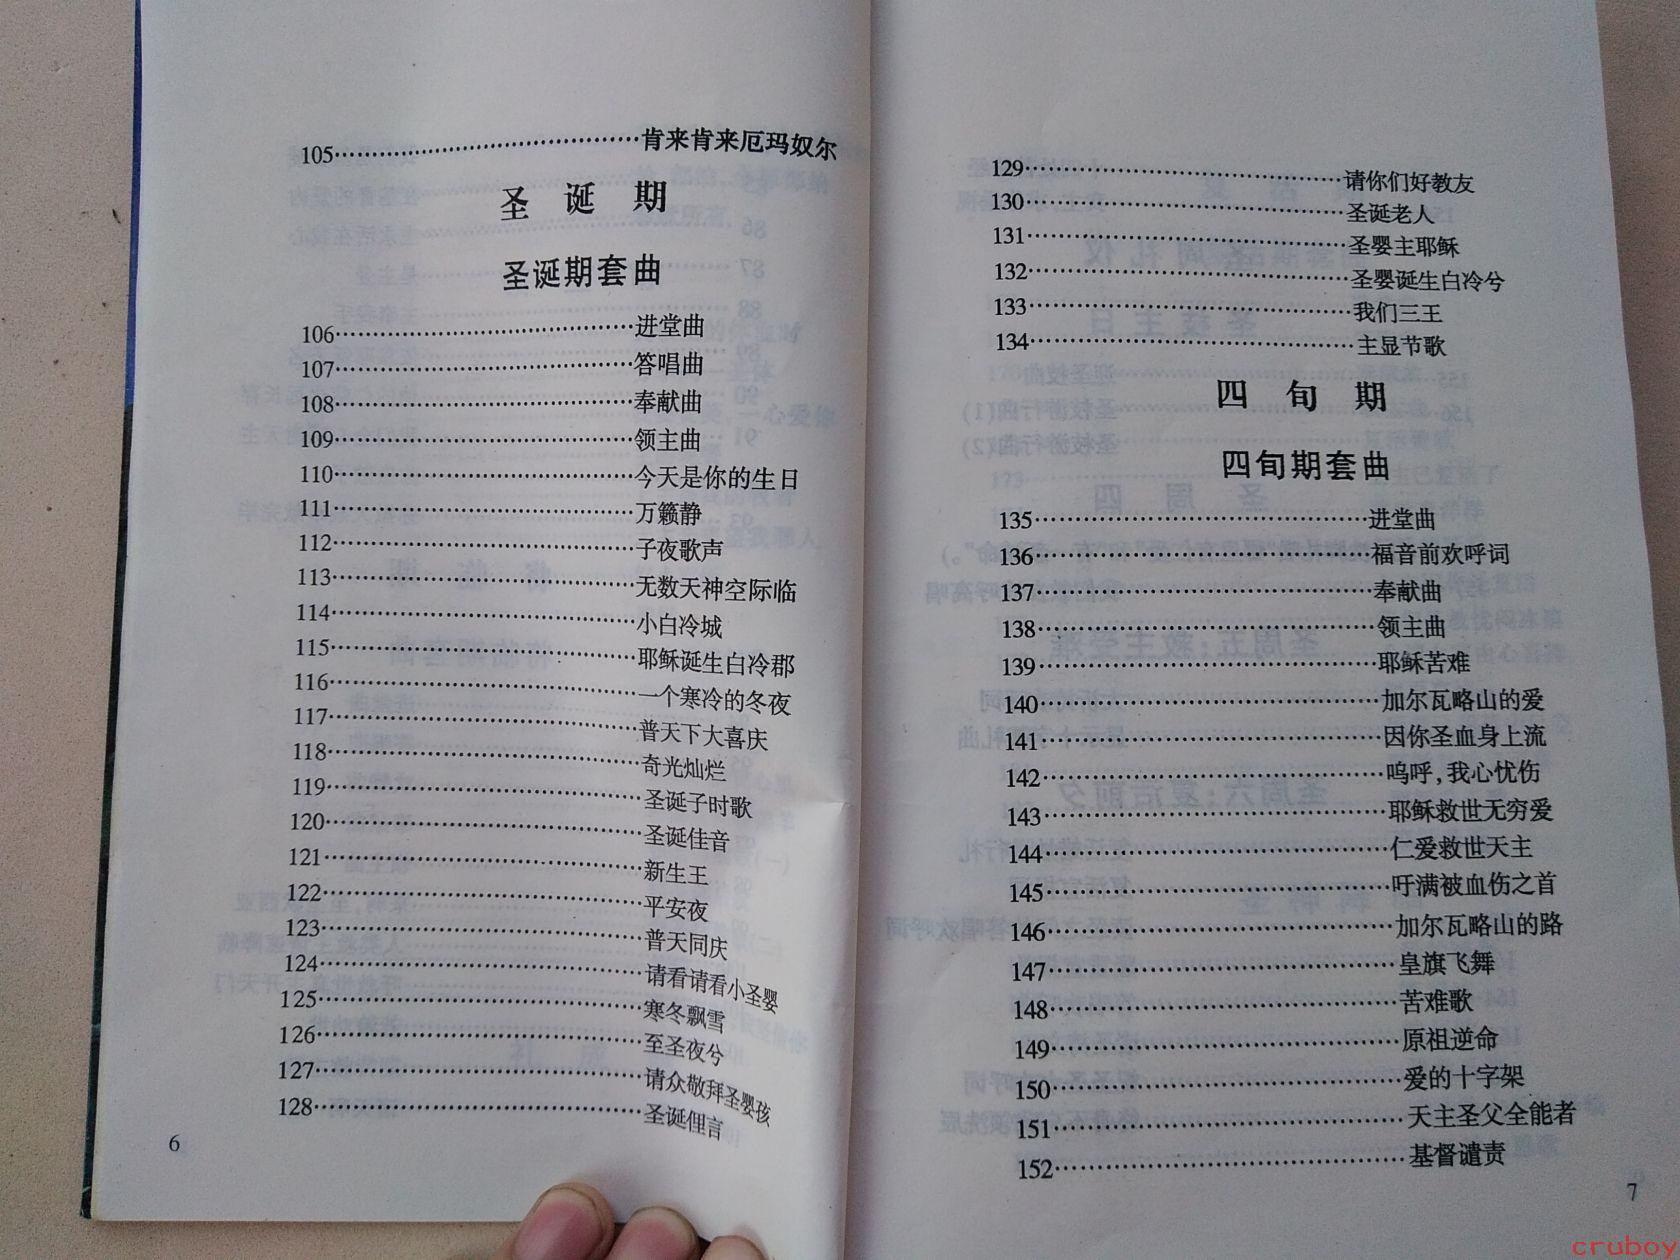 105……肯来肯来厄玛奴尔
圣 诞 期
圣诞期套曲
106……进堂曲
107……答唱曲
108……奉献曲
109……领主曲
110……今天是你的生日
111……万籁静
112……子夜歌声
113……无数天神空际临
114……小白冷城
115……耶稣诞生白冷郡
116……一个寒冷的冬夜
117……普天下大喜庆
118……奇光灿烂
119……圣诞子时歌
120……圣诞佳音
121……新生王
122……平安夜
123……普天同庆
124……请看请看小圣婴
125……寒冬飘雪
126……至圣夜兮
127……请众敬拜圣婴孩
128……圣诞俚言
6
129……请你们好教友
130……圣诞老人
131……圣婴主耶稣
132……圣婴诞生白冷兮
133……我们三王
134……主显节歌
四 旬 期
四旬期套曲
135……进堂曲
136……福音前欢呼词
137……奉献曲
138……领主曲
139……耶稣苦难
140……加尔瓦略山的爱
141……因你圣血身上流
142……呜呼,我心忧伤
143……耶稣救世无穷爱
144……仁爱救世天主
145……吁满被血伤之首
146……加尔瓦略山的路
147……皇旗飞舞
148……苦难歌
149……原祖逆命
150……爱的十字架
151……天主圣父全能者
152……基督谴责
7
cruboy